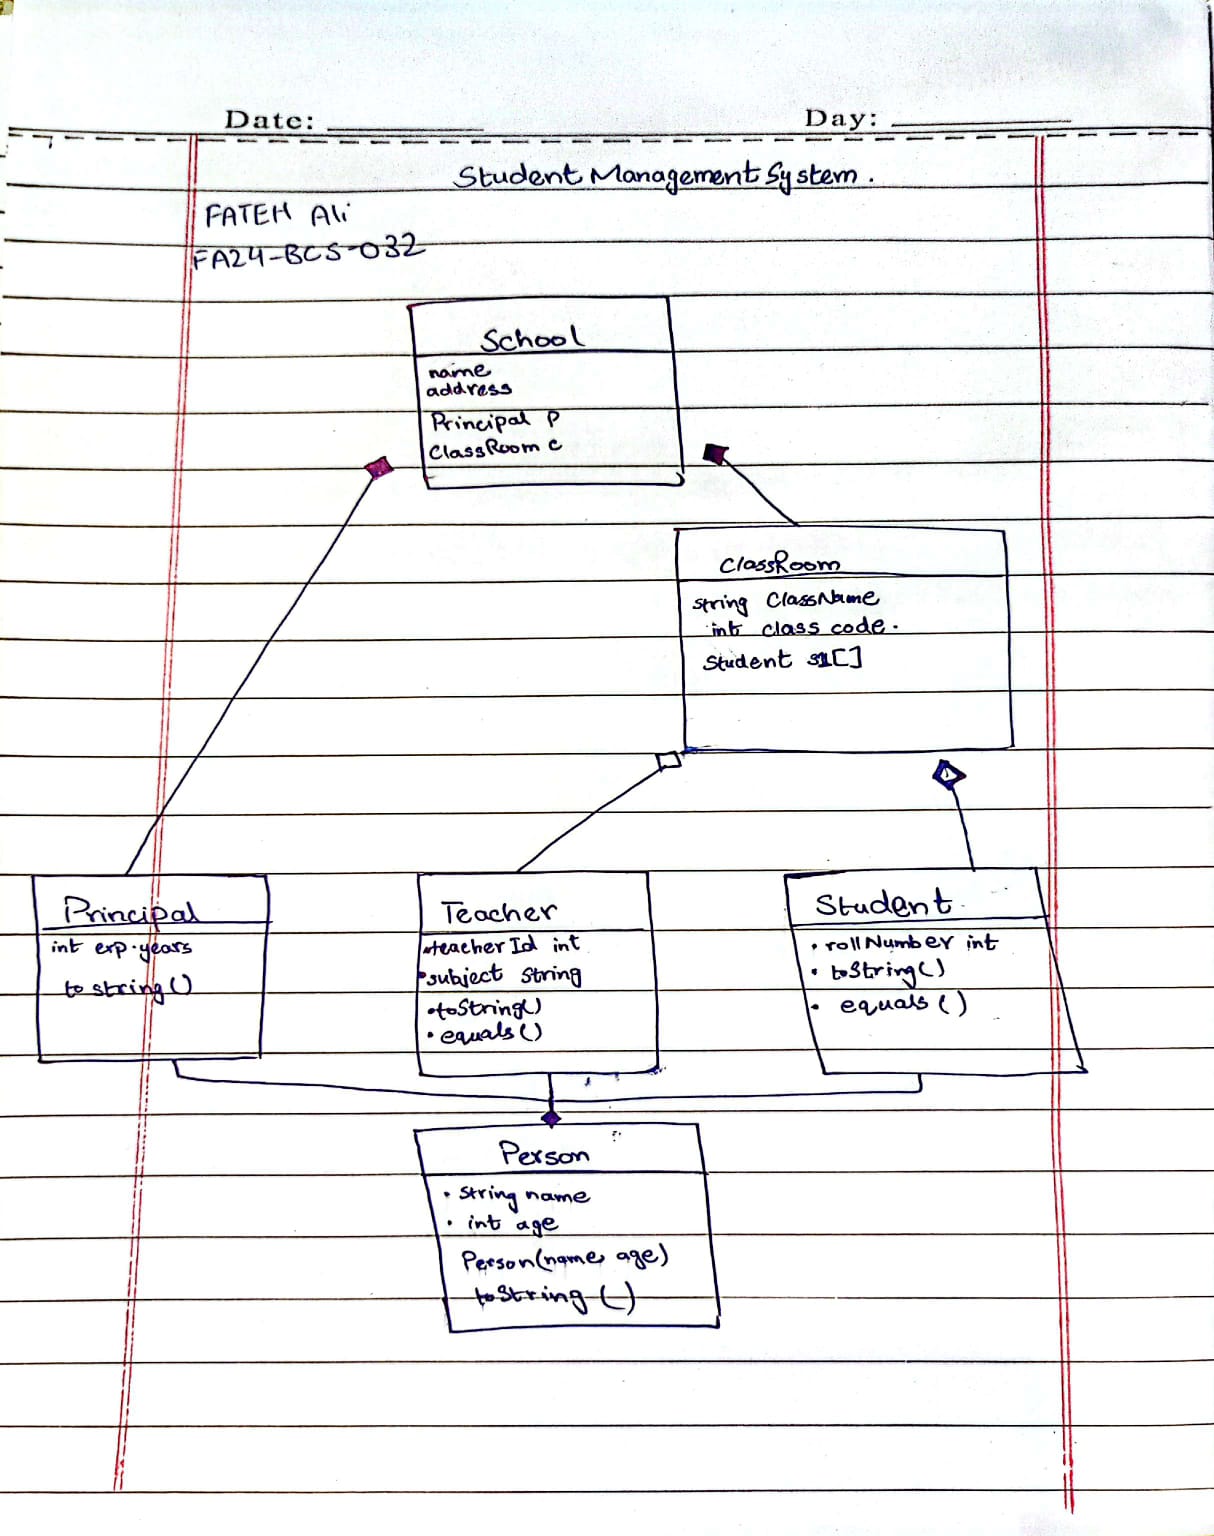 Date:
Day:
Student Management System.
FATEH Ali
FA24-BCS-032
School
name
address
Principal P
ClassRoom c
ClassRoom
string ClassName
int class code.
Student s1[]
Principal
int exp.years
to string()
Teacher
•teacherId int
•subject String
•toString()
• equals()
Student
• rollNumber int
• toString()
• equals()
Person
• string name
• int age
Person(name, age)
toString()